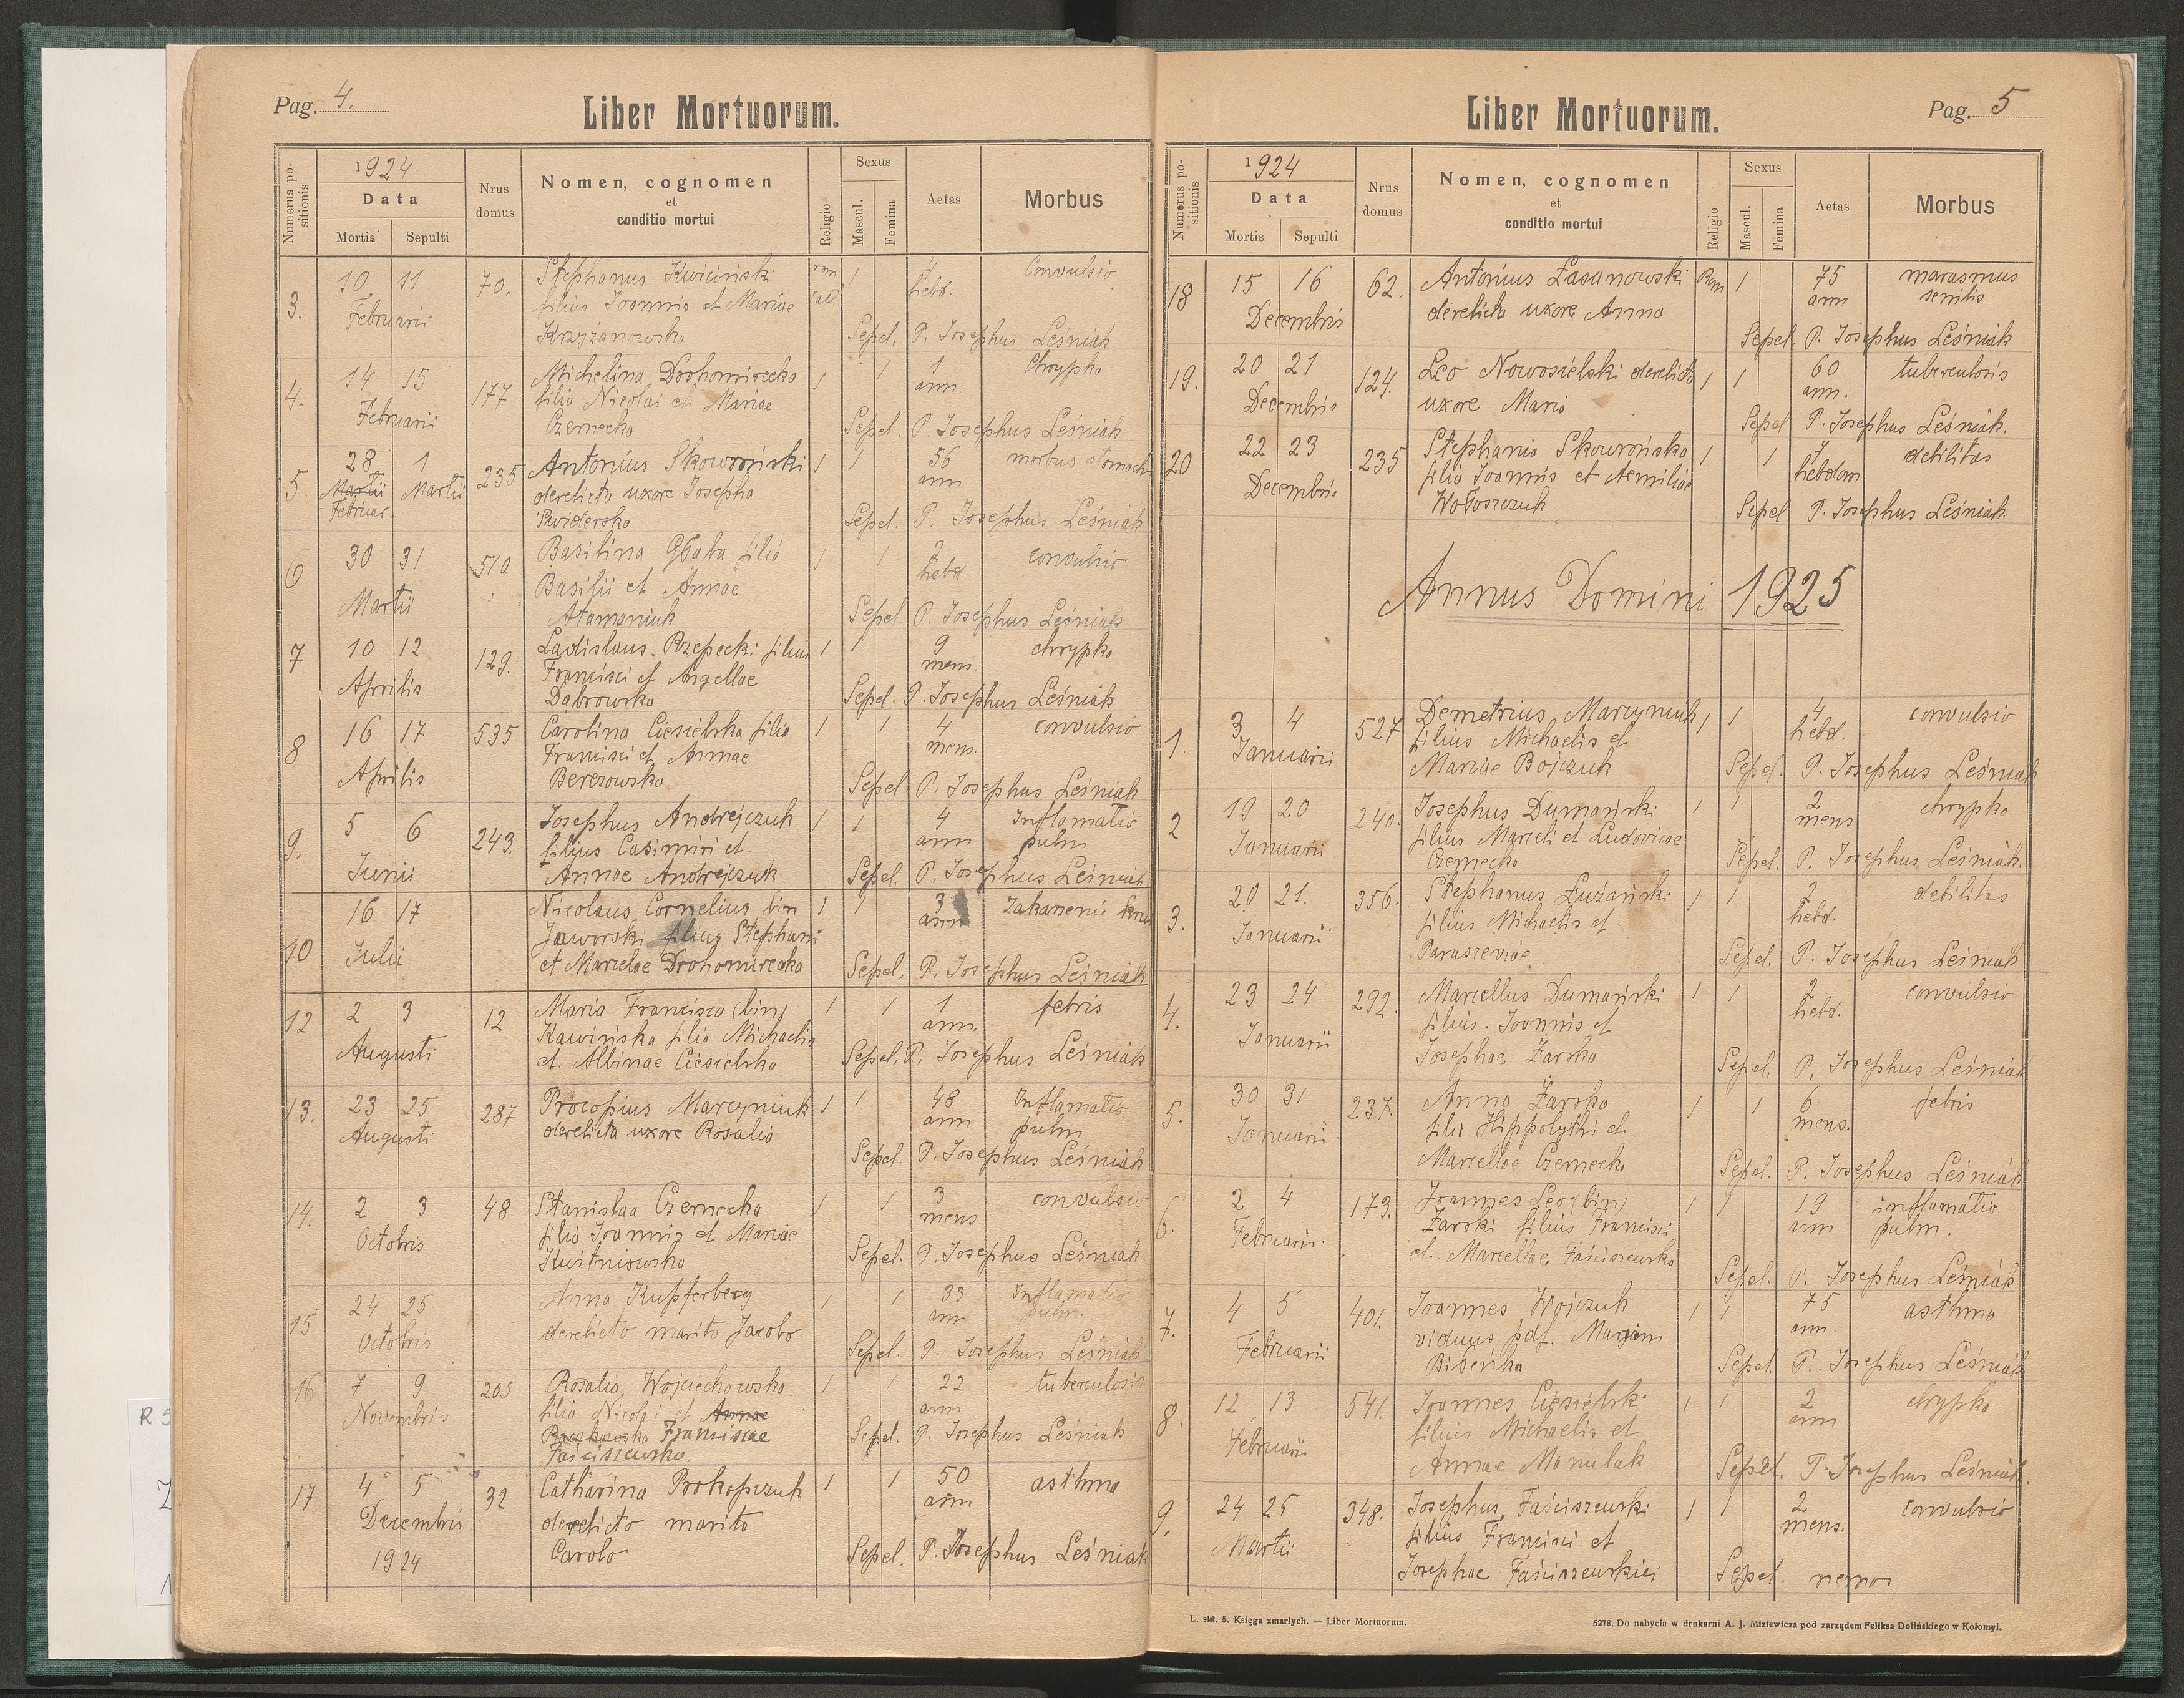 Pag. 4.
Liber Mortuorum.
Numerus positionis
1924
Data
Mortis Sepulti
Nrus domus
Nomen, cognomen
et
conditio mortui
Religio
Sexus
Mascul. Femina
Aetas
Morbus
3. 10 11 70. Stephanus Kwiciński rom 1 4 Convulsio
Februarii filius Joannis et Mariae cat. hebd.
Krzyżanowska Sepel. P. Josephus Leśniak
4. 14 15 177 Michelina Drohomirecka 1 1 1 Chrypka
Februarii filia Nicolai et Mariae ann.
Czernecka Sepel. P. Josephus Leśniak
5 28 1 235 Antonius Skowroński 1 1 56 morbus stomach
Martii Martii derelicta uxore Josepha ann
Februar. Świderska Sepel. P. Josephus Leśniak
6 30 31 510 Basilina Głaba filia 1 1 2 convulsio
Martii Basilii et Annae hebd
Atamaniuk Sepel. P. Josephus Leśniak
7 10 12 129. Ladislaus Rzepecki filius 1 1 9 chrypka
Aprilis Francisci et Angellae mens.
Dąbrowska Sepel. P. Josephus Leśniak
8 16 17 535 Carolina Ciesielska filia 1 1 4 convulsio
Aprilis Francisci et Annae mens.
Berezowska Sepel. P. Josephus Leśniak
9. 5 6 243. Josephus Andrejczuk 1 1 4 Inflamatio
Junii filius Casimiri et ann pulm
Annae Andrejczuk Sepel. P. Josephus Leśniak
10 16 17 Nicolaus Cornelius bin 1 1 3 Zakażenie krwi
Julii Jaworski filius Stephani ann
et Marcelae Drohomirecka Sepel. P. Josephus Leśniak
12 2 3 12 Maria Francisca (bin) 1 1 1 febris
Augusti Kawińska filia Michaelis ann.
et Albinae Ciesielska Sepel. P. Josephus Leśniak
13. 23 25 287 Procopius Marcyniuk 1 1 48 Inflamatio
Augusti derelicta uxore Rosalia ann pulm
Sepel. P. Josephus Leśniak
14. 2 3 48 Stanislaa Czernecka 1 1 3 convulsio
Octobris filia Joannis et Mariae mens
Kwitniowska Sepel. P. Josephus Leśniak
15 24 25 Anna Kupferberg 1 1 33 Inflamatio
Octobris derelicto marito Jacobo ann pulm.
Sepel. P. Josephus Leśniak
16 7 9 205 Rosalia, Wojciechowska 1 1 22 tuberculosis
Novembris filia Nicolai et Annae ann
Franciscae Sepel. P. Josephus Leśniak
Faściszewska.
17 4 5 32 Catharina Prokopczuk 1 1 50 asthma
Decembris derelicto marito ann
1924 Carolo Sepel. P. Josephus Leśniak
Liber Mortuorum.
Pag. 5
Numerus positionis
1924
Data
Mortis Sepulti
Nrus domus
Nomen, cognomen
et
conditio mortui
Religio
Sexus
Mascul. Femina
Aetas
Morbus
18 15 16 62. Antonius Łasanowski Rom 1 75 marasmus
Decembris derelicta uxore Anna ann senilis
Sepel. P. Josephus Leśniak
19. 20 21 124. Leo Nowosielski derelicta 1 1 60 tuberculosis
Decembris uxore Maria ann.
Sepel P. Josephus Leśniak.
20 22 23 235 Stephania Skowrońska 1 1 7 debilitas
Decembris filia Joannis et Aemiliae hebdom
Wołoszczuk Sepel P. Josephus Leśniak
Annus Domini 1925
1. 3 4 527 Demetrius Marcyniuk 1 1 4 convulsio
Januarii filius Michaelis et hebd.
Mariae Bojczuk Sepel. P. Josephus Leśniak
2 19 20 240. Josephus Dumański 1 1 2 chrypka
Januarii filius Marceli et Ludovicae mens
Czernecka Sepel. P. Josephus Leśniak.
3. 20 21. 356. Stephanus Łużański 1 1 2 debilitas
Januarii filius Michaelis et hebd.
Parasceviae Sepel. P. Josephus Leśniak
4. 23 24 292. Marcellus Dumański 1 1 2 convulsio
Januarii filius Joannis et hebd.
Josephae Żarska Sepel. P. Josephus Leśniak
5. 30 31 237. Anna Żarska 1 1 6 febris
Januarii filia Hippolythi et mens.
Marcellae Czernecka Sepel. P. Josephus Leśniak
6. 2 4 173. Joannes Leo (bin) 1 1 19 inflamatio
Februarii Żarski filius Francisci ann pulm.
et Marcellae Faściszewska
Sepel. P. Josephus Leśniak
7. 4 5 401. Joannes Wojczuk 1 1 75 asthma
Februarii viduus pdf. Mariam ann.
Bileńka Sepel. P. Josephus Leśniak
8. 12 13 541. Joannes Ciesielski 1 1 2 chrypka
Februarii filius Michaelis et ann
Annae Manulak Sepel. P. Josephus Leśniak.
9. 24 25 348. Josephus Faściszewski 1 1 2 convulsio
Martii filius Francisci et mens.
Josephae Faściszewskiei Sepel.
L. skł. 5. Księga zmarłych. — Liber Mortuorum.
5278. Do nabycia w drukarni A. J. Miziewicza pod zarządem Feliksa Dolińskiego w Kołomyi.